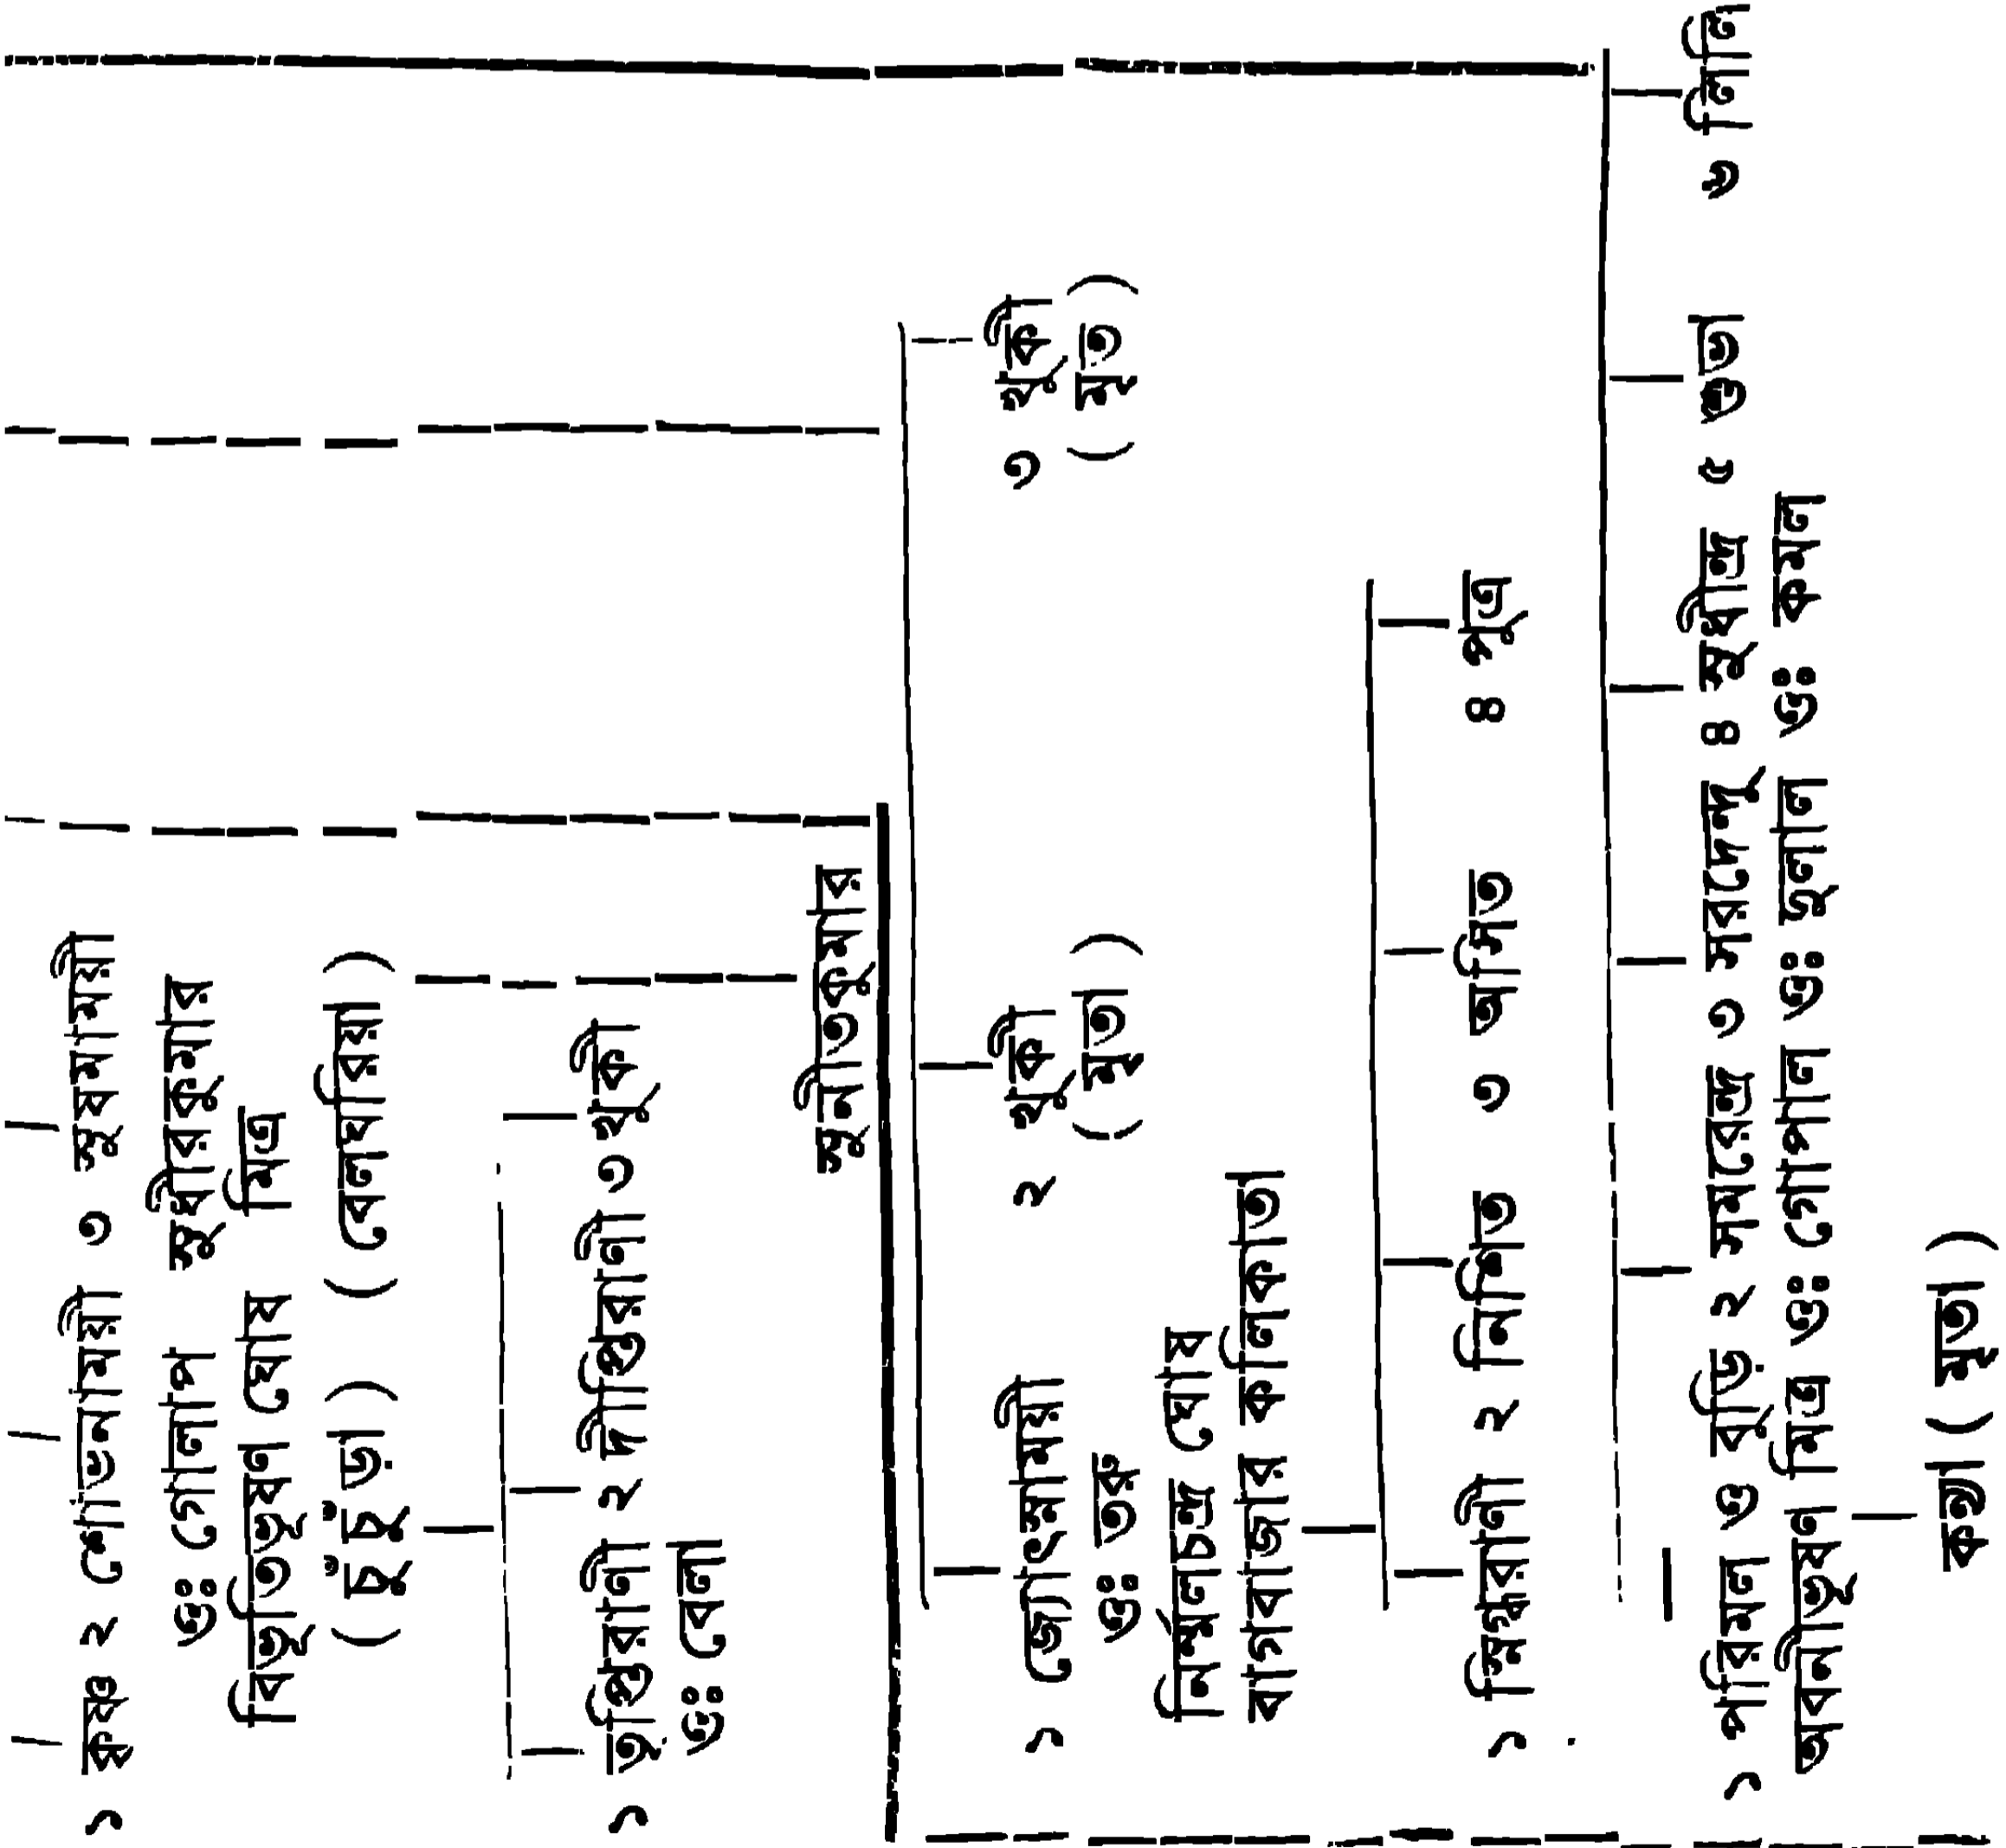 ১ কৃষ্ণ ২ শোভনাময়ী ৩ সুষমাময়ী
ওঃ গোলাপ সুধীরকুমার
বিভূতিভূষণ ঘোষ মিত্র
(চুঁচুঁড়া) (বেলঘরিয়া)
১ তৃপ্তিরাণী ২ দীপ্তিরাণী ৩ খুকী
ওঃ বেলা
সুনীতকুমার
১ জ্যোৎস্নাময়ী ২ খুকী ৩ খুকী
ওঃ তরু (মৃতা) (মৃত)
নির্ম্মলচন্দ্র ঘোষ
বাগবাজার কলিকাতা
১ স্নিগ্ধরাণী ২ নিশিত ৩ অসিত ৪ পুত্র
১ পরিমল ও বুড়ি ২ সমরেন্দ্র ৩ সরদেন্দু ৪ সুধীন্দ্র ৫ শুভা ৬ লিলি
অবনীভূষণ মিত্র ওঃ গোপাল ওঃ দুলাল ওঃ কমল
কন্যা (মৃতা)